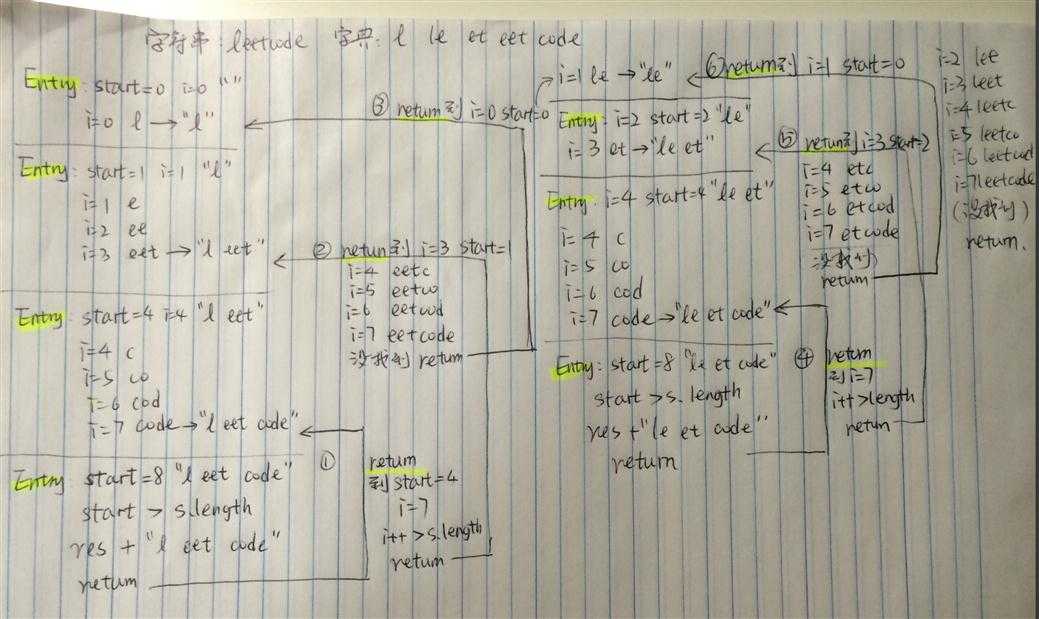 字符串:leetcode 字典:l le et eet code
Entry: start=0 i=0 ""
i=0 l→"l"
Entry: start=1 i=1 "l"
i=1 e
i=2 ee
i=3 eet→"l eet"
Entry: start=4 i=4 "l eet"
i=4 c
i=5 co
i=6 cod
i=7 code→"l eet code"
Entry start=8 "l eet code"
start > s.length
res + "l eet code"
return
① return
到start=4
i=7
i++>s.length
return
② return到 i=3 start=1
i=4 eetc
i=5 eetco
i=6 eetcod
i=7 eetcode
没找到 return
③ return到 i=0 start=0
i=1 le→"le"
Entry: i=2 start=2 "le"
i=3 et→"le et"
Entry: i=4 start=4 "le et"
i=4 c
i=5 co
i=6 cod
i=7 code→"le et code"
Entry: start=8 "le et code"
start >s.length
res +"le et code"
return
④ return
到i=7
i++>length
return
⑤ return到 i=3 start=2
i=4 etc
i=5 etco
i=6 etcod
i=7 etcode
没找到
return
⑥ return到 i=1 start=0
i=2 lee
i=3 leet
i=4 leetc
i=5 leetco
i=6 leetcod
i=7 leetcode
(没找到)
return.